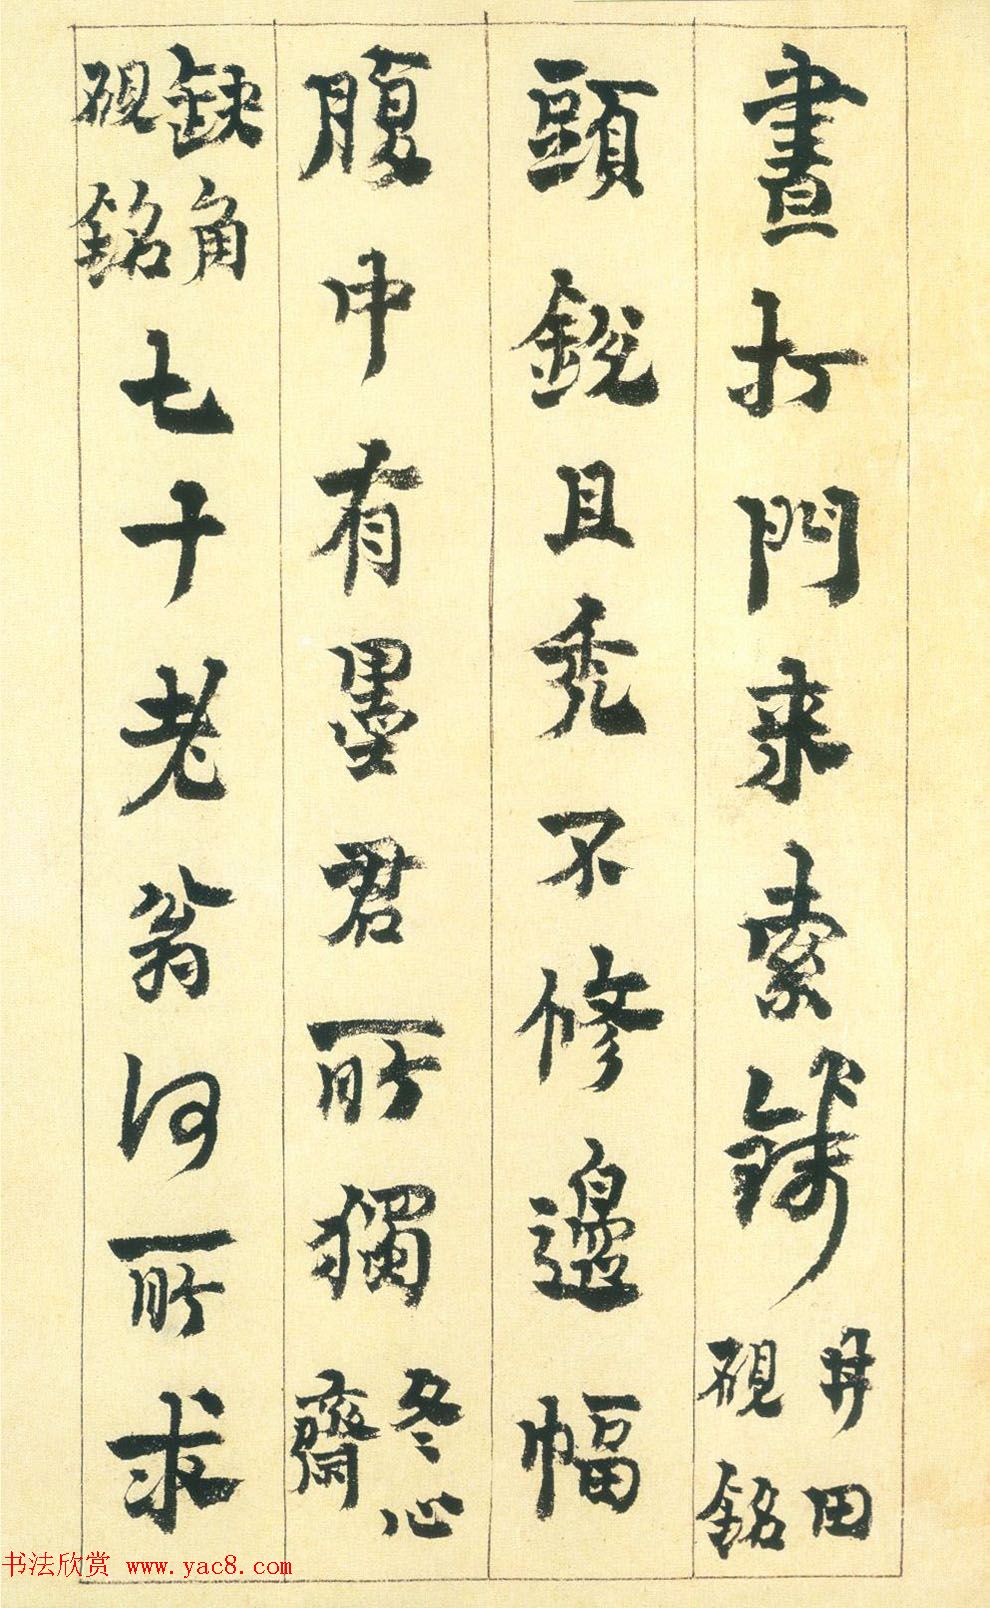 晝打門来索錢井田硯銘
頭銳且秃不修邊幅
腹中有墨君所獨冬心齋
缺角硯銘七十老翁何所求
书法欣赏 www.yac8.com